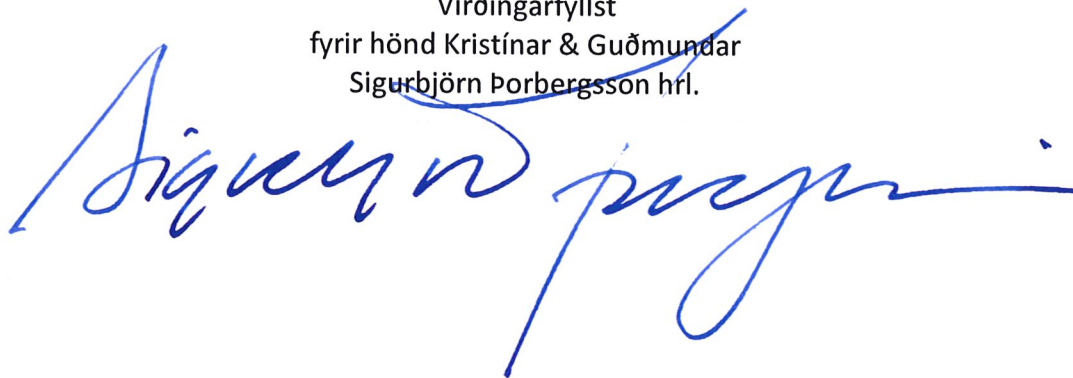 Virðingarfyllst
fyrir hönd Kristínar & Guðmundar
Sigurbjörn Þorbergsson hrl.